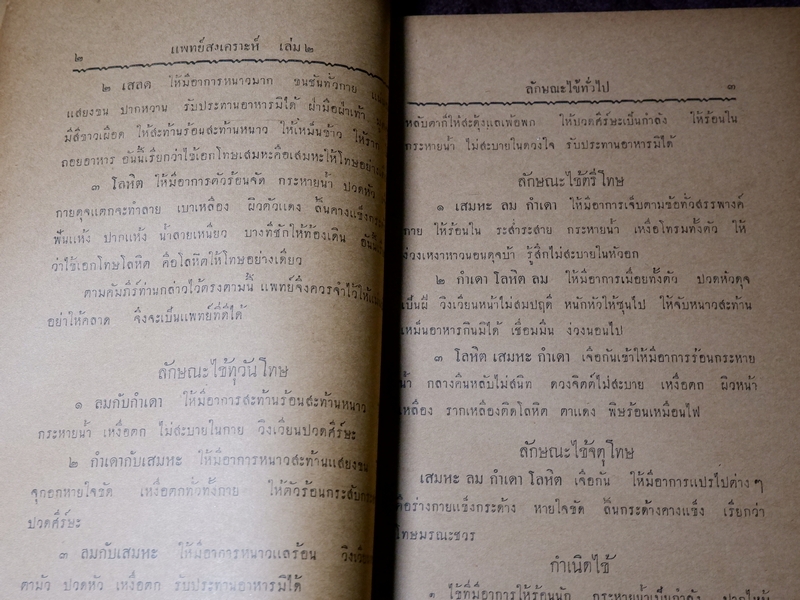 ๒
แพทย์สงเคราะห์ เล่ม ๒
๒ เสลด ให้มีอาการหนาวมาก ขนชันทั่วกาย
แสยงขน ปากหวาน รับประทานอาหารมิได้ ฝ่ามือฝ่าเท้า
มีสีขาวเผือด ให้สะท้านร้อนสะท้านหนาว ให้เหม็นข้าว ให้ราก
ถอยอาหาร อันนี้เรียกว่าไข้เอกโทษเสมหะคือเสมหะให้โทษอย่าง
๓ โลหิต ให้มีอาการตัวร้อนจัด กระหายน้ำ ปวดหัว
กายดุจแตกจะทำลาย เบาเหลือง ผิวตัวแดง ลิ้นคางแข็ง
ฟันแห้ง ปากแห้ง น้ำลายเหนียว บางที่ชักให้ท้องเดิน อันนี้
ว่าไข้เอกโทษโลหิต คือโลหิตให้โทษอย่างเดียว
ตามคัมภีร์ท่านกล่าวไว้ตรงตามนี้ แพทย์จึงควรจำไว้ให้
อย่าให้คลาด จึงจะเป็นแพทย์ที่ดีได้
ลักษณะไข้ทุวันโทษ
๑ ลมกับกำเดา ให้มีอาการสะท้านร้อนสะท้านหนาว
กระหายน้ำ เหงื่อตก ไม่สะบายในกาย วิงเวียนปวดศีร์ษะ
๒ กำเดากับเสมหะ ให้มีอาการหนาวสะท้านแสยงขน
จุกอกหายใจขัด เหงื่อตกทั่วทั้งกาย ให้ตัวร้อนกระสับกระ
ปวดศีร์ษะ
๓ ลมกับเสมหะ ให้มีอาการหนาวแลร้อน วิงเวียน
ตามัว ปวดหัว เหงื่อตก รับประทานอาหารมิได้
ลักษณะไข้ทั่วไป
๓
หลับตาก็ให้สะดุ้งแลเพ้อพก ให้ปวดศีร์ษะเป็นกำลัง ให้ร้อนใน
กระหายน้ำ ไม่สะบายในดวงใจ รับประทานอาหารมิได้
ลักษณะไข้ตรีโทษ
๑ เสมหะ ลม กำเดา ให้มีอาการเจ็บตามข้อทั่วสรรพางค์
กาย ให้ร้อนใน ระส่ำระสาย กระหายน้ำ เหงื่อโทรมทั้งตัว ให้
ง่วงเหงาหาวนอนดุจบ้า รู้สึกไม่สะบายในหัวอก
๒ กำเดา โลหิต ลม ให้มีอาการเมื่อยทั้งตัว ปวดหัวดุจ
เป็นฝี วิงเวียนหน้าไม่สมปฤดี หนักหัวให้ซุนไป ให้จับหนาวสะท้าน
เหม็นอาหารกินมิได้ เชื่อมมึน ง่วงนอนไป
๓ โลหิต เสมหะ กำเดา เจือกันเข้าให้มีอาการร้อนกระหาย
น้ำ กลางคืนหลับไม่สนิท ดวงจิตต์ไม่สะบาย เหงื่อตก ผิวหน้า
เหลือง รากเหลืองติดโลหิต ตาแดง พิษร้อนเหมือนไฟ
ลักษณะไข้จัตุโทษ
เสมหะ ลม กำเดา โลหิต เจือกัน ให้มีอาการแปรไปต่าง ๆ
คือร่างกายแข็งกระด้าง หายใจขัด ลิ้นกระด้างคางแข็ง เรียกว่า
โทษมรณะชวร
กำเนิดไข้
๑ ไข้ที่มีอาการให้ร้อนนัก กระหายน้ำเป็นกำลัง